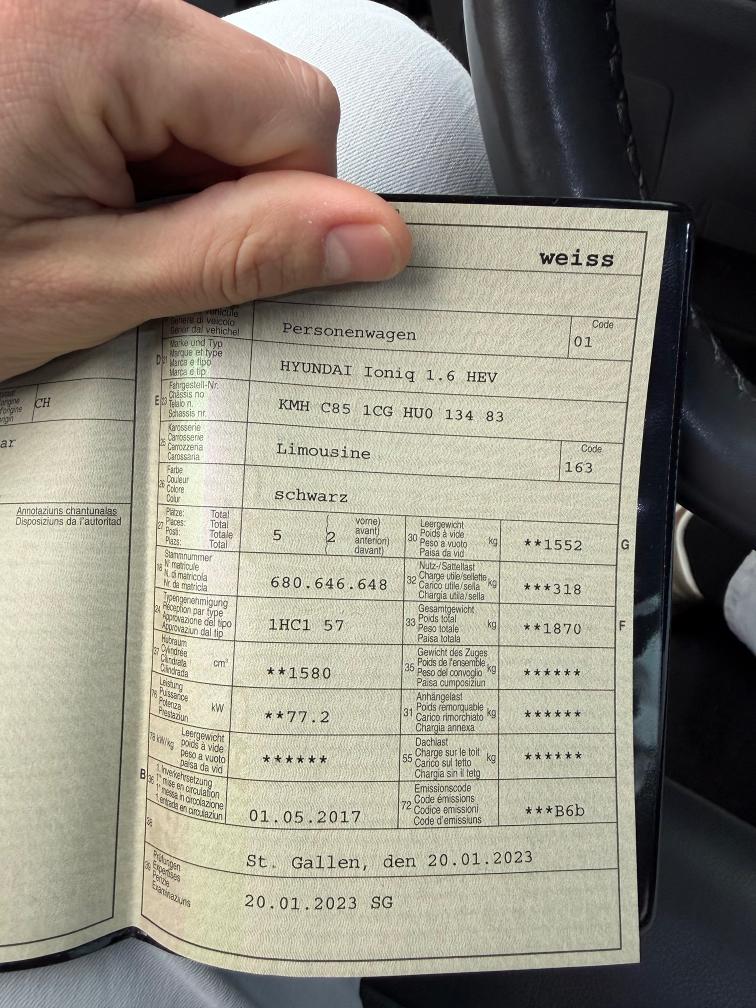 weiss
véhicule
Genere di veicolo
Gener dal vehichel
Personenwagen
Code
01
D
21
Marke und Typ
Marque et type
Marca e tipo
Marca e tip
HYUNDAI Ioniq 1.6 HEV
E
23
Fahrgestell-Nr.
Châssis no
Telaio n.
Schassis nr.
KMH C85 1CG HU0 134 83
25
Karosserie
Carrosserie
Carrozzeria
Carossaria
Limousine
Code
163
26
Farbe
Couleur
Colore
Colur
schwarz
27
Plätze: Total
Places: Total
Posti: Totale
Plazs: Total
5
2
vorne)
avant)
anteriori)
davant)
30
Leergewicht
Poids à vide
Peso a vuoto
Paisa da vid
kg
**1552
G
18
Stammnummer
N° matricule
N. di matricola
Nr. da matricla
680.646.648
32
Nutz-/Sattellast
Charge utile/sellette
Carico utile/sella
Chargia utila/sella
kg
***318
24
Typengenehmigung
Réception par type
Approvazione del tipo
Approvaziun dal tip
1HC1 57
33
Gesamtgewicht
Poids total
Peso totale
Paisa totala
kg
**1870
F
37
Hubraum
Cylindrée
Cilindrata
Cilindrada
cm³
**1580
35
Gewicht des Zuges
Poids de l'ensemble
Peso del convoglio
Paisa cumposiziun
kg
******
76
Leistung
Puissance
Potenza
Prestaziun
kW
**77.2
31
Anhängelast
Poids remorquable
Carico rimorchiato
Chargia annexa
kg
******
78
kW/kg
Leergewicht
poids à vide
peso a vuoto
paisa da vid
******
55
Dachlast
Charge sur le toit
Carico sul tetto
Chargia sin il tetg
kg
******
B
36
1. Inverkehrsetzung
1re mise en circulation
1a messa in circolazione
1. entrada en circulaziun
01.05.2017
72
Emissionscode
Code émissions
Codice emissioni
Code d'emissiuns
***B6b
38
St. Gallen, den 20.01.2023
39
Prüfungen
Expertises
Perizie
Examinaziuns
20.01.2023 SG
origine
d'origine
origin
CH
ar
Annotaziuns chantunalas
Disposiziuns da l'autoritad